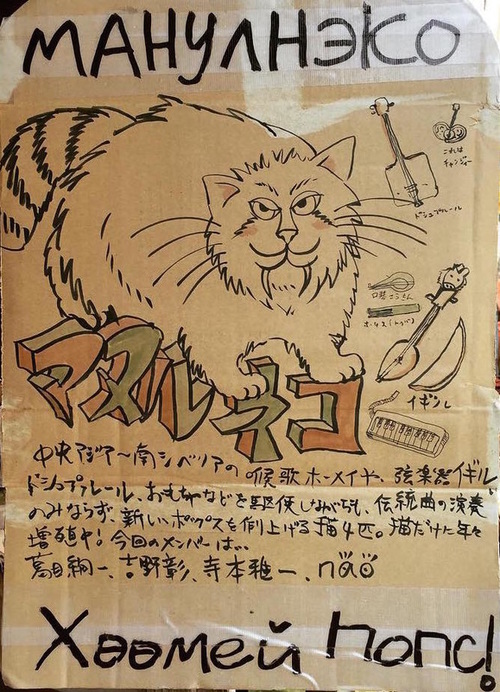 МАНУЛНЭКО
これは
ドシュプルール
口琴
マヌルネコ
イギル
中央アジア〜南シベリアの喉歌ホーメイや、弦楽器イギル
ドシュプルール、おもちゃなどを駆使しながらも、伝統曲の演奏
のみならず、新しいポップスを創上げる猫4匹。猫だけに年々
増殖中!今回のメンバーは...
葛目絢一、吉野彰、寺本雅一、nao
Хөөмей попс!